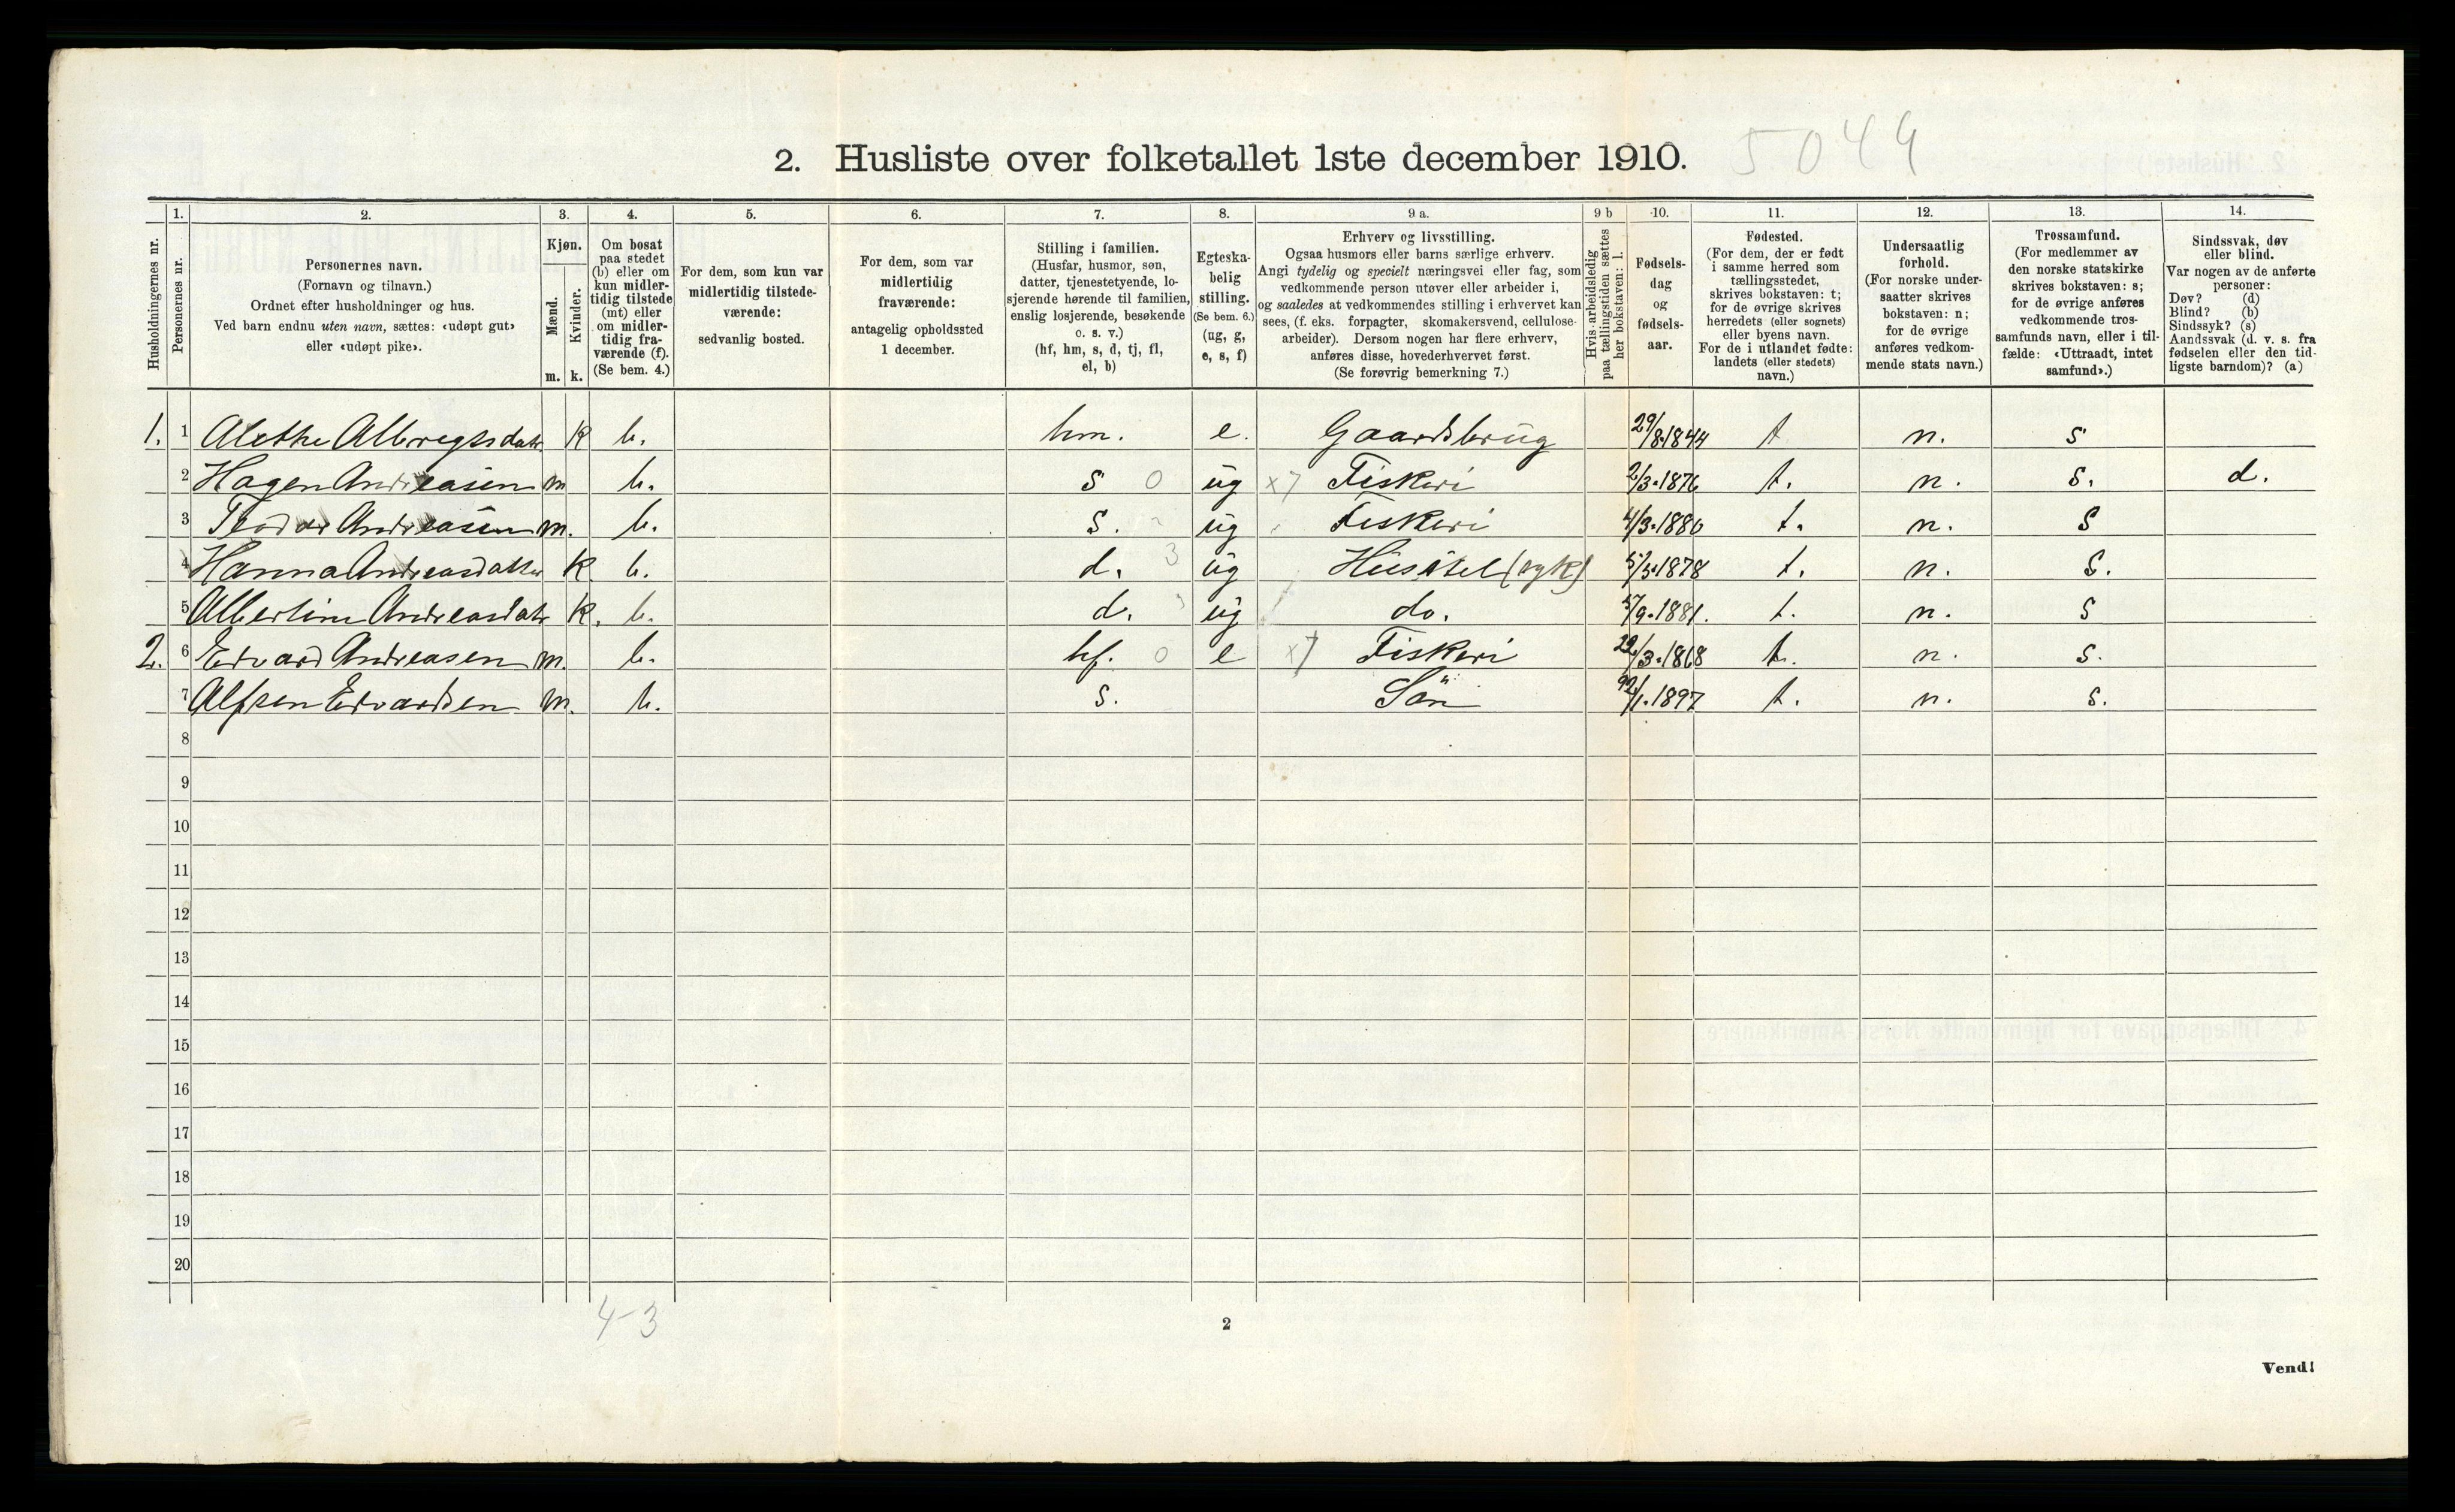 2. Husliste over folketallet 1ste december 1910. 5044
Husholdningernes nr.
1. Personernes nr.
2. Personernes navn. (Fornavn og tilnavn.) Ordnet efter husholdninger og hus. Ved barn endnu uten navn, sættes: «udøpt gut» eller «udøpt pike».
3. Kjøn. Mænd. m. Kvinder. k.
4. Om bosat paa stedet (b) eller om kun midlertidig tilstede (mt) eller om midlertidig fraværende (f). (Se bem. 4.)
5. For dem, som kun var midlertidig tilstedeværende: sedvanlig bosted.
6. For dem, som var midlertidig fraværende: antagelig opholdssted 1 december.
7. Stilling i familien. (Husfar, husmor, søn, datter, tjenestetyende, losjerende hørende til familien, enslig losjerende, besøkende o. s. v.) (hf, hm, s, d, tj, fl, el, b)
8. Egteskabelig stilling. (Se bem. 6.) (ug, g, e, s, f)
9 a. Erhverv og livsstilling. Ogsaa husmors eller barns særlige erhverv. Angi tydelig og specielt næringsvei eller fag, som vedkommende person utøver eller arbeider i, og saaledes at vedkommendes stilling i erhvervet kan sees, (f. eks. forpagter, skomakersvend, cellulosearbeider). Dersom nogen har flere erhverv, anføres disse, hovederhvervet først. (Se forøvrig bemerkning 7.)
9 b Hvis arbeidsledig paa tællingstiden sættes her bokstaven: l.
10. Fødselsdag og fødselsaar.
11. Fødested. (For dem, der er født i samme herred som tællingsstedet, skrives bokstaven: t; for de øvrige skrives herredets (eller sognets) eller byens navn. For de i utlandet fødte: landets (eller stedets) navn.)
12. Undersaatlig forhold. (For norske undersaatter skrives bokstaven: n; for de øvrige anføres vedkommende stats navn.)
13. Trossamfund. (For medlemmer av den norske statskirke skrives bokstaven: s; for de øvrige anføres vedkommende trossamfunds navn, eller i tilfælde: «Uttraadt, intet samfund».)
14. Sindssvak, døv eller blind. Var nogen av de anførte personer: Døv? (d) Blind? (b) Sindssyk? (s) Aandssvak (d. v. s. fra fødselen eller den tidligste barndom)? (a)
1. 1 Alethe Albregtsdatr k b. hm. e. Gaardsbrug 29/8.1844 t n. s
2 Hagen Andreasen m b. s 0 ug x7 Fiskeri 2/3.1876 t. n. s. d.
3 Teodor Andreasen m. b. s. ug Fiskeri 4/3.1880 t. n. s
4 Hanna Andreasdatter k b. d. 3 ug Husstel (syk) 1878 t. n. s.
5 Albertine Andreasdatr k. b. d. ug do. 9.1881. t. n. s
2. 6 Edvard Andreasen m. b. hf. 0 e x7 Fiskeri 22/3.1868 t. n. s.
7 Alfren Edvardsen m. b. s. Sön 1.1897 t. n. s.
8
9
10
11
12
13
14
15
16
17
18
19
20
4-3
2
Vend!